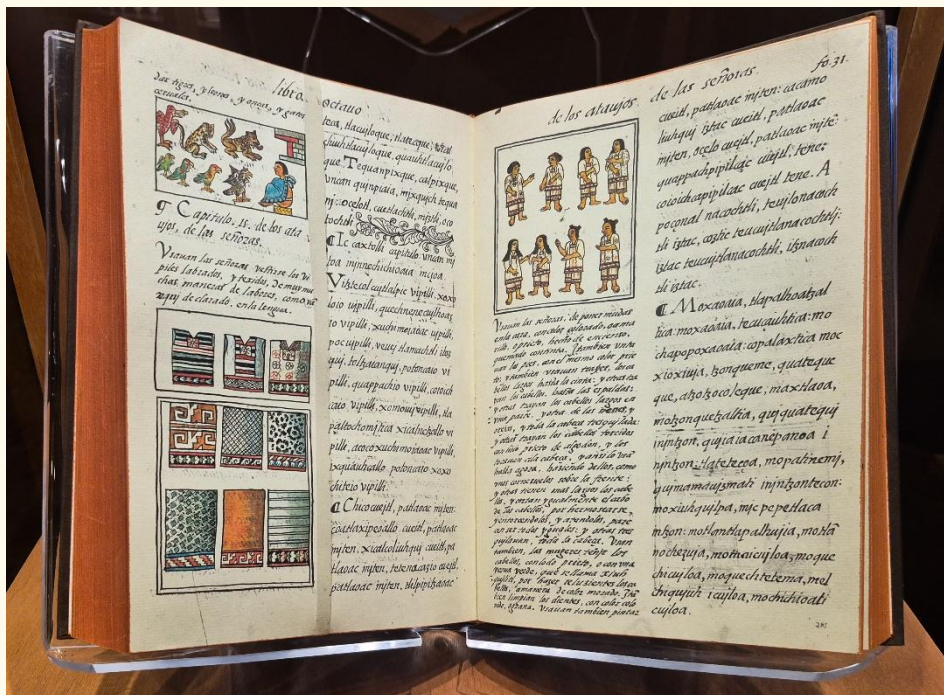 libro. octauo
das tigres, y leones, y onças, y gatos
ceruales.
¶ Capitulo. 15. de los ata
uios, de las señoras.
Vsauan las señoras vestirse los vi
piles labrados, y texidos, de muy mu
chas maneras de labores, como va
declarado. en la lengua.
teca, tlacujloque, tlatecque,
chiuhtlacujloque, quauhtlacujlo
que. Tequanpixque, calpixque,
vncan qujnpiaia, mjxquich tequa
nj: ocelotl, cuetlachtli, mjztli, oco
tochtli
¶ Ic caxtolli capitulo vncan mj
toa injnnechichioaia
loio vipilli,
io vipilli, xuchimoiaoac vipilli,
pocvipilli, vevey tlamachtli
quj, potoncaio vi
pilli, quappachio vipilli,
caio vipilli,
vi
pilli,
potoncaio xoxo
chiteio vipilli.
¶ Chicocueitl, patlaoac injten:
coatlaxipeoallo cueitl, patlaoac
injten. xicalcoliuhquj cueitl, pa
tlaoac injten, tetenacazio cueitl
patlaoac injten, tlilpipitzaoac
de los atauios, de las señoras. fo. 31.
Vsauan las señoras, de poner mudas
en la cara, con color colorado, o ama
rillo, o prieto, hecho de encienso,
quemado con tinta. I tambien vnta
uan los pies, con el mesmo color prie
to: y tambien vsauan traer, los ca
bellos largos hasta la cinta: y otras tra
yan los cabellos, hasta las espaldas:
y otras trayan los cabellos largos en
vna parte, y otra de las sienes, y
orejas, y toda la cabeza trasquilada:
y otras trayan los cabellos torcidos
con hilo prieto de algodon, y los
a la cabeça, y
haziendo dellos, como
vnos cornezuelos sobre la frente:
y otras tienen mas largos los cabe
llos, y cortan ygualmente el cabo
de los cabellos, por hermosearse,
y en torciendolos, y atandolos, pare
cen ser todos yguales: y otras tres
quilauan, toda la cabeça. Vsan
tambien, las mugeres teñir los
cabellos, con lodo prieto, o con vna
yerua verde, que se llama xiuh
quilitl, por hazer relucientes los ca
bellos, a manera de color morado. Itam
bien limpian los dientes, con color colo
rado, o grana. Vsauan tambien pintar
cueitl, patlaoac injten: cacamo
liuhquj iztac cueitl, patlaoac
injten, ocelo cueitl, patlaoac injte:
quappachpipilcac cueitl, tene:
cocoichcapipilcac cueitl tene. A
poçonal nacochtli, teujlonacoch
tli iztac, coztic teucujtlanacochtli:
iztac teucujtlanacochtli, itznacoch
tli iztac.
¶ Moxaoaia, tlapalhoatzal
tica: moxaoaia, tecuçauhtica: mo
chapopoxaoaia: copalaxtica moc
xioxiuja, tzonqueme, quateque
que, atzotzocoleque, maxtlaoa,
motzonquetzaltia, quiquatequj
injntzon, qujiaiacanepanoa i
njntzon: tlatetecoa, mopatinemj,
qujmamauizmati injntzontecon:
moxiuhqujlpa, mjc pepetlaca
intzon: motlantlapalhujia, motla
nochezuja, momaicujloa, moque
chicujloa, moquechtetema, mel
chiquiuh icujloa, mochichioalti
cujloa.